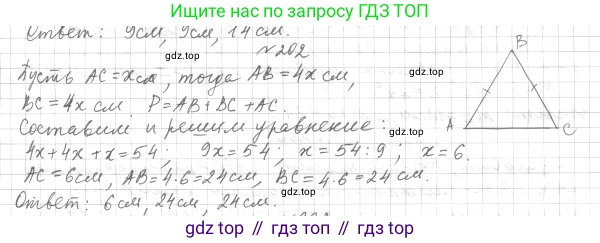 Ищите нас по запросу ГДЗ ТОП
Ответ: 9см, 9см, 14 см.
gdz.top
№202
Пусть AC = x см, тогда AB = 4x см,
gdz.top
B
BC = 4x см P = AB + BC + AC.
Составим и решим уравнение:
A
C
4x + 4x + x = 54; 9x = 54; x = 54 : 9; x = 6.
gdz.top
AC = 6см, AB = 4·6 = 24см, BC = 4·6 = 24 см.
gdz.top
Ответ: 6 см, 24 см, 24 см.
gdz.top // gdz.top // gdz.top // gdz.top // gdz.top